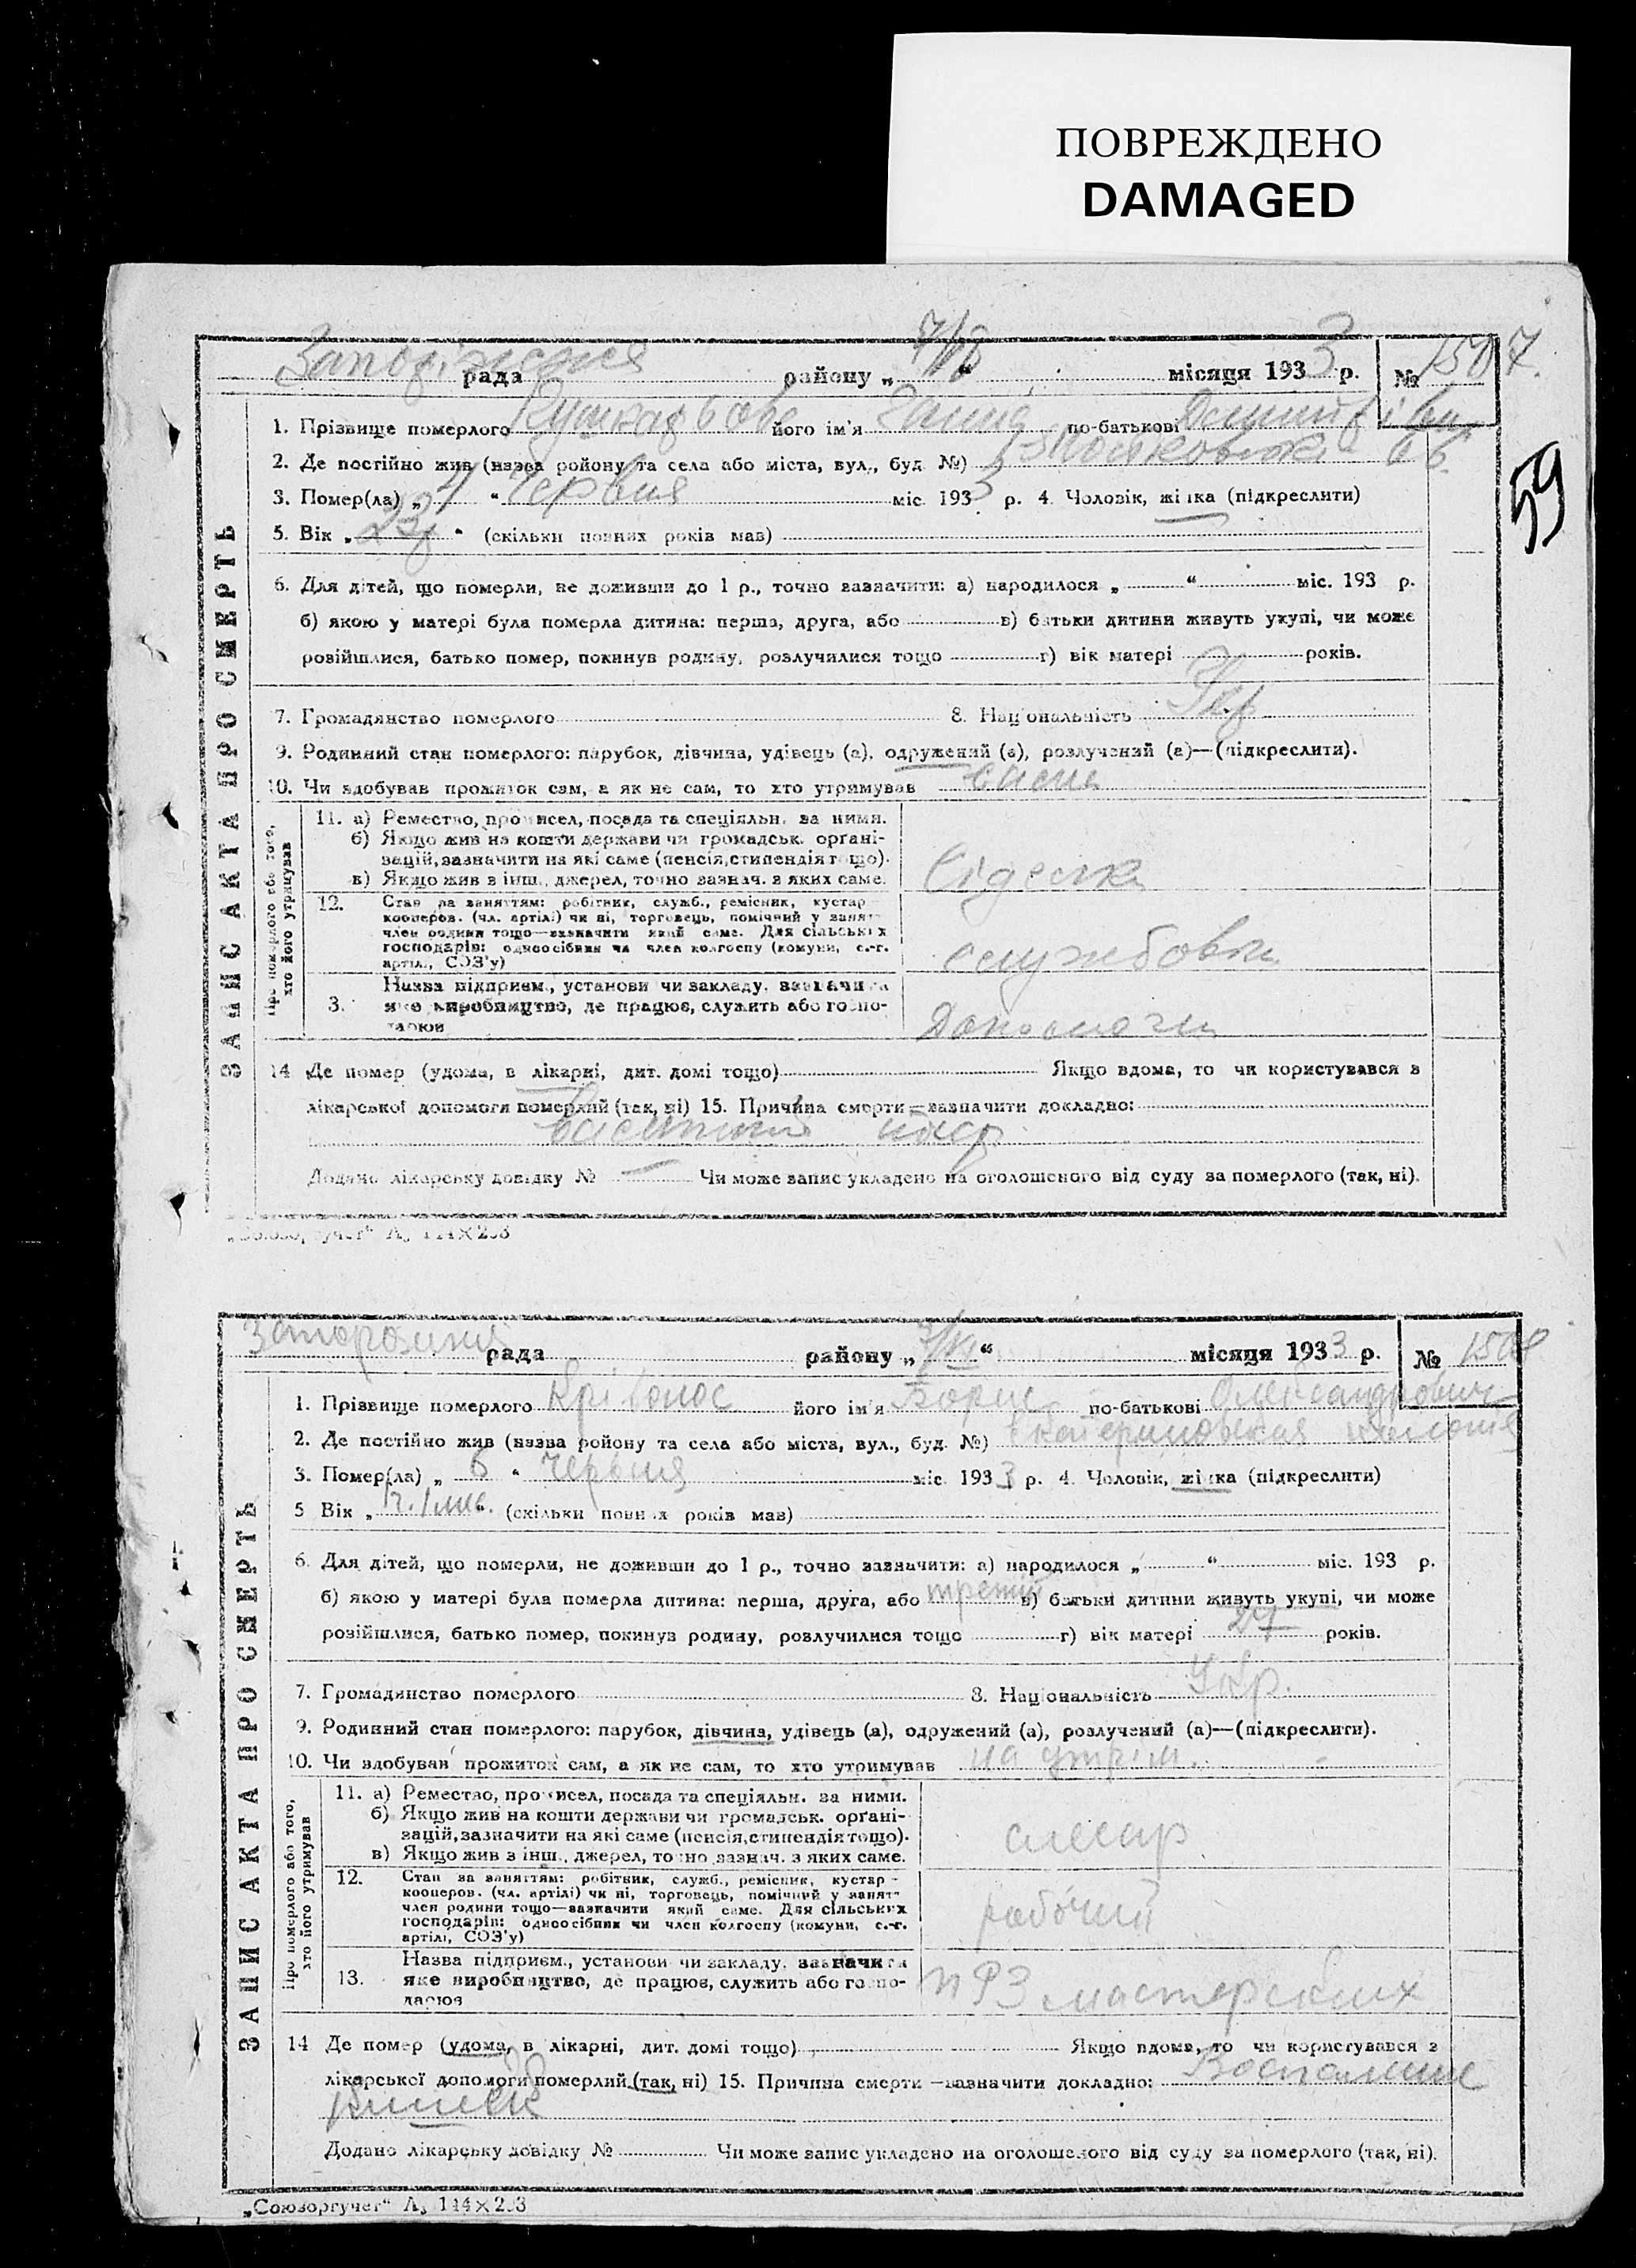 ПОВРЕЖДЕНО
DAMAGED
рада району „ 7/VI “ місяця 1933 р. № 1507
59
ЗАПИС АКТА ПРО СМЕРТЬ
1. Прізвище померлого його ім'я Ганна по-батькові
2. Де постійно жив (назва району та села або міста, вул., буд. №) 66
3. Помер(ла) „ 4 “ Червня міс. 1933 р. 4. Чоловік, жінка (підкреслити)
5. Вік „ 23 “ (скільки повних років мав)
6. Для дітей, що померли, не доживши до 1 р., точно зазначити: а) народилося „ “ міс. 193 р.
б) якою у матері була померла дитина: перша, друга, або в) батьки дитини живуть укупі, чи може
розійшлися, батько помер, покинув родину, розлучилися тощо г) вік матері років.
7. Громадянство померлого 8. Національність Укр
9. Родинний стан померлого: парубок, дівчина, удівець (а), одружений (а), розлучений (а)—(підкреслити).
10. Чи здобував прожиток сам, а як не сам, то хто утримував
Про померлого або того, хто його утримував
11. а) Ремество, промисел, посада та спеціяльн. за ними.
б) Якщо жив на кошти держави чи громадськ. органі-
зацій, зазначити на які саме (пенсія, стипендія тощо).
в) Якщо жив з інш. джерел, точно зазнач. з яких саме.
Сіделка
12. Стан за заняттям: робітник, служб., ремісник, кустар
кооперов. (чл. артілі) чи ні, торговець, помічний у занят-
член родини тощо—зазначити який саме. Для сільських
господарів: одноосібник чи член колгоспу (комуни, с.-г.
артілі, СОЗ'у)
службовка
3. Назва підприєм., установи чи закладу, зазначити
яке виробництво, де працює, служить або госпо-
дарює
14 Де помер (удома, в лікарні, дит. домі тощо) Якщо вдома, то чи користувався з
лікарської допомоги померлий (так, ні) 15. Причина смерти—зазначити докладно:
Додано лікарську довідку № — Чи може запис укладено на оголошеного від суду за померлого (так, ні).
„Союзоргучет“ А5 144×203
рада району „ 7/VI “ місяця 1933 р. № 1508
ЗАПИС АКТА ПРО СМЕРТЬ
1. Прізвище померлого Крівонос його ім'я Борис по-батькові Олександрович
2. Де постійно жив (назва району та села або міста, вул., буд. №)
3. Помер(ла) „ 6 “ Червня міс. 1933 р. 4. Чоловік, жінка (підкреслити)
5 Вік „ “ (скільки повних років мав)
6. Для дітей, що померли, не доживши до 1 р., точно зазначити: а) народилося „ “ міс. 193 р.
б) якою у матері була померла дитина: перша, друга, або третий в) батьки дитини живуть укупі, чи може
розійшлися, батько помер, покинув родину, розлучилися тощо г) вік матері 27 років.
7. Громадянство померлого 8. Національність Укр.
9. Родинний стан померлого: парубок, дівчина, удівець (а), одружений (а), розлучений (а)—(підкреслити).
10. Чи здобував прожиток сам, а як не сам, то хто утримував на утрим.
Про померлого або того, хто його утримував
11. а) Ремество, промисел, посада та спеціяльн. за ними.
б) Якщо жив на кошти держави чи громадськ. органі-
зацій, зазначити на які саме (пенсія, стипендія тощо).
в) Якщо жив з інш. джерел, точно зазнач. з яких саме.
слесар
12. Стан за заняттям: робітник, служб., ремісник, кустар
кооперов. (чл. артілі) чи ні, торговець, помічний у занят-
член родини тощо—зазначити який саме. Для сільських
господарів: одноосібник чи член колгоспу (комуни, с.-г.
артілі, СОЗ'у)
робочий
13. Назва підприєм., установи чи закладу, зазначити
яке виробництво, де працює, служить або госпо-
дарює
ПРЗ мастерских
14 Де помер (удома, в лікарні, дит. домі тощо) Якщо вдома, то чи користувався з
лікарської допомоги померлий (так, ні) 15. Причина смерти—зазначити докладно: Воспаление
Додано лікарську довідку № Чи може запис укладено на оголошеного від суду за померлого (так, ні).
„Союзоргучет“ А5 144×203